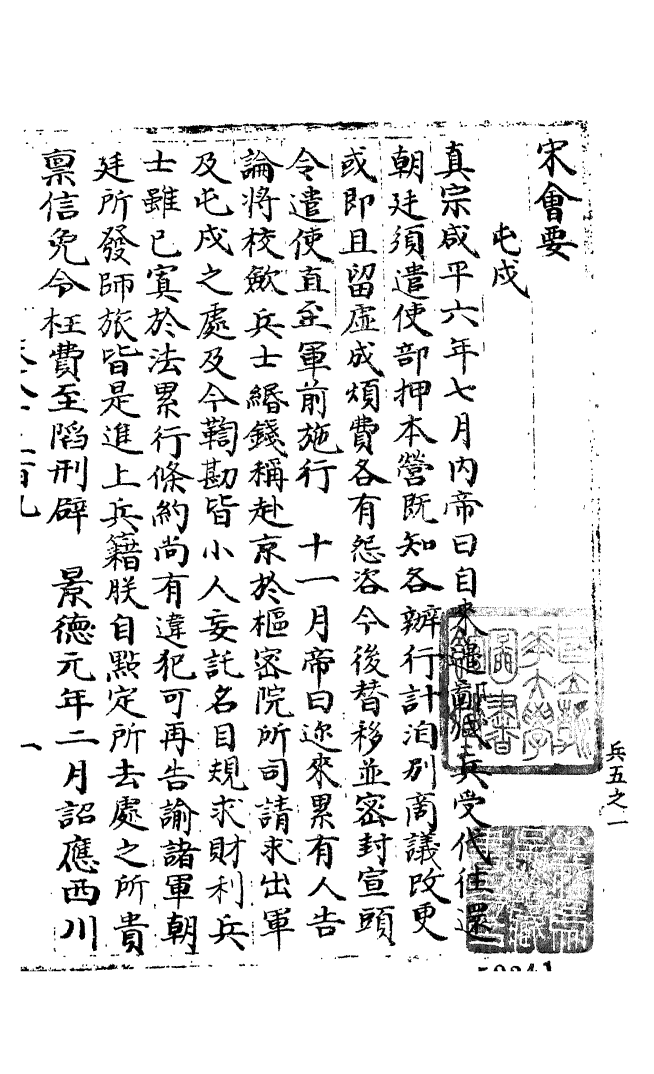 宋會要
屯戍
真宗咸平六年七月內帝曰自來遣戍兵受代往還
朝廷須遣使部押本營旣知各辦行計洎別啇議改更
或即且留虛成煩費各有怨咨今後替移並密封宣頭
令遣使直至軍前施行 十一月帝曰迩來累有人告
論將校歛兵士緡錢稱赴京於樞密院所司請求出軍
及屯戍之處及令鞫勘皆小人妄託名目規求財利兵
士雖已寘於法累行條約尚有違犯可再告諭諸軍朝
廷所發師旅皆是進上兵籍朕自點定所去處之所貴
禀信免令枉費至䧟刑辟 景德元年二月詔應西川
一
兵五之一